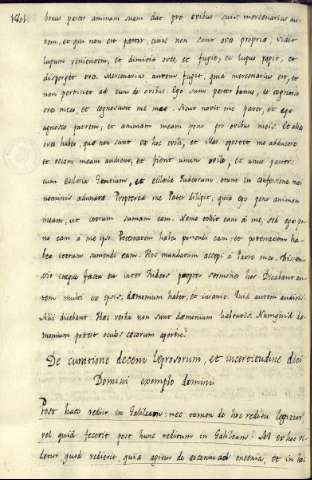 bonus pastor animam suam dat pro ovibus suis mercenarius au-
tem, et qui non est pastor, cuius non sunt oves propriæ, videt
lupum venientem, et dimittit oves, et fugit, et lupus rapit, et
dispergit oves. Mercenarius autem fugit, quia mercenarius est, et
non pertinet ad eum de ovibus. Ego sum pastor bonus, et cognosco
oves meas, et cognoscunt me meæ. Sicut novit me pater, et ego
agnosco patrem, et animam meam pono pro ovibus meis. et alias
oves habeo, quæ non sunt ex hoc ovili, et illas oportet me adducere
et vocem meam audient, et fiet unum ovile, et unus pastor.
cum ecclesia Gentium, et ecclesia Iudæorum erunt in confessione mei
nominis adunata. Propterea me Pater diligit, quia ego pono animam
meam, ut iterum sumam eam. Nemo tollit eam à me, sed ego po-
no eam à me ipso. Potestatem habeo ponendi eam, et potestatem ha-
beo iterum sumendi eam. Hoc mandatum accepi à Patre meo. Dissen-
sio iterum facta est inter Iudæos propter sermones hos. Dicebant au-
tem multi ex ipsis, dæmonium habet, et insanit. Quid eum auditis?
Alii dicebant. Hæc verba non sunt dæmonium habentis. Numquid dæ-
monium potest oculos cæcorum aperire?
De curatione decem leprosorum, et incertitudine diei
Domini exemplo
Post hæc redit in Galilæam: nec tamen de hoc reditu legitur,
vel quid fecerit post hunc reditum in Galilæam. Sed ex hoc vi-
detur, quod redierit, quia agitur de encænia, et in hoc